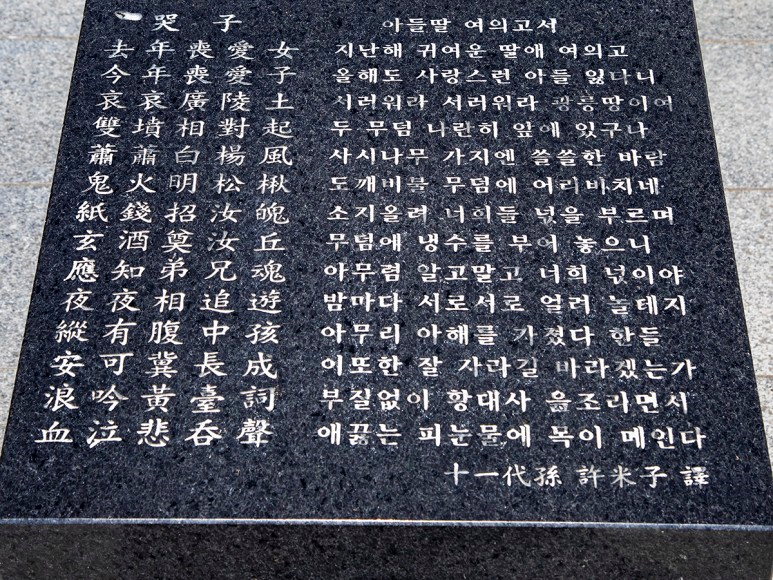 哭子 아들딸 여의고서
去年喪愛女 지난해 귀여운 딸애 여의고
今年喪愛子 올해도 사랑스런 아들 잃다니
哀哀廣陵土 서러워라 서러워라 광릉땅이여
雙墳相對起 두 무덤 나란히 앞에 있구나
蕭蕭白楊風 사시나무 가지엔 쓸쓸한 바람
鬼火明松楸 도깨비불 무덤에 어리비치네
紙錢招汝魄 소지올려 너희들 넋을 부르며
玄酒奠汝丘 무덤에 냉수를 부어 놓으니
應知弟兄魂 아무렴 알고말고 너희 넋이야
夜夜相追遊 밤마다 서로서로 얼려 놀테지
縱有腹中孩 아무리 아해를 가졌다 한들
安可冀長成 이또한 잘 자라길 바라겠는가
浪吟黃臺詞 부질없이 황대사 읊조리면서
血泣悲呑聲 애끓는 피눈물에 목이 메인다
十一代孫 許米子 譯